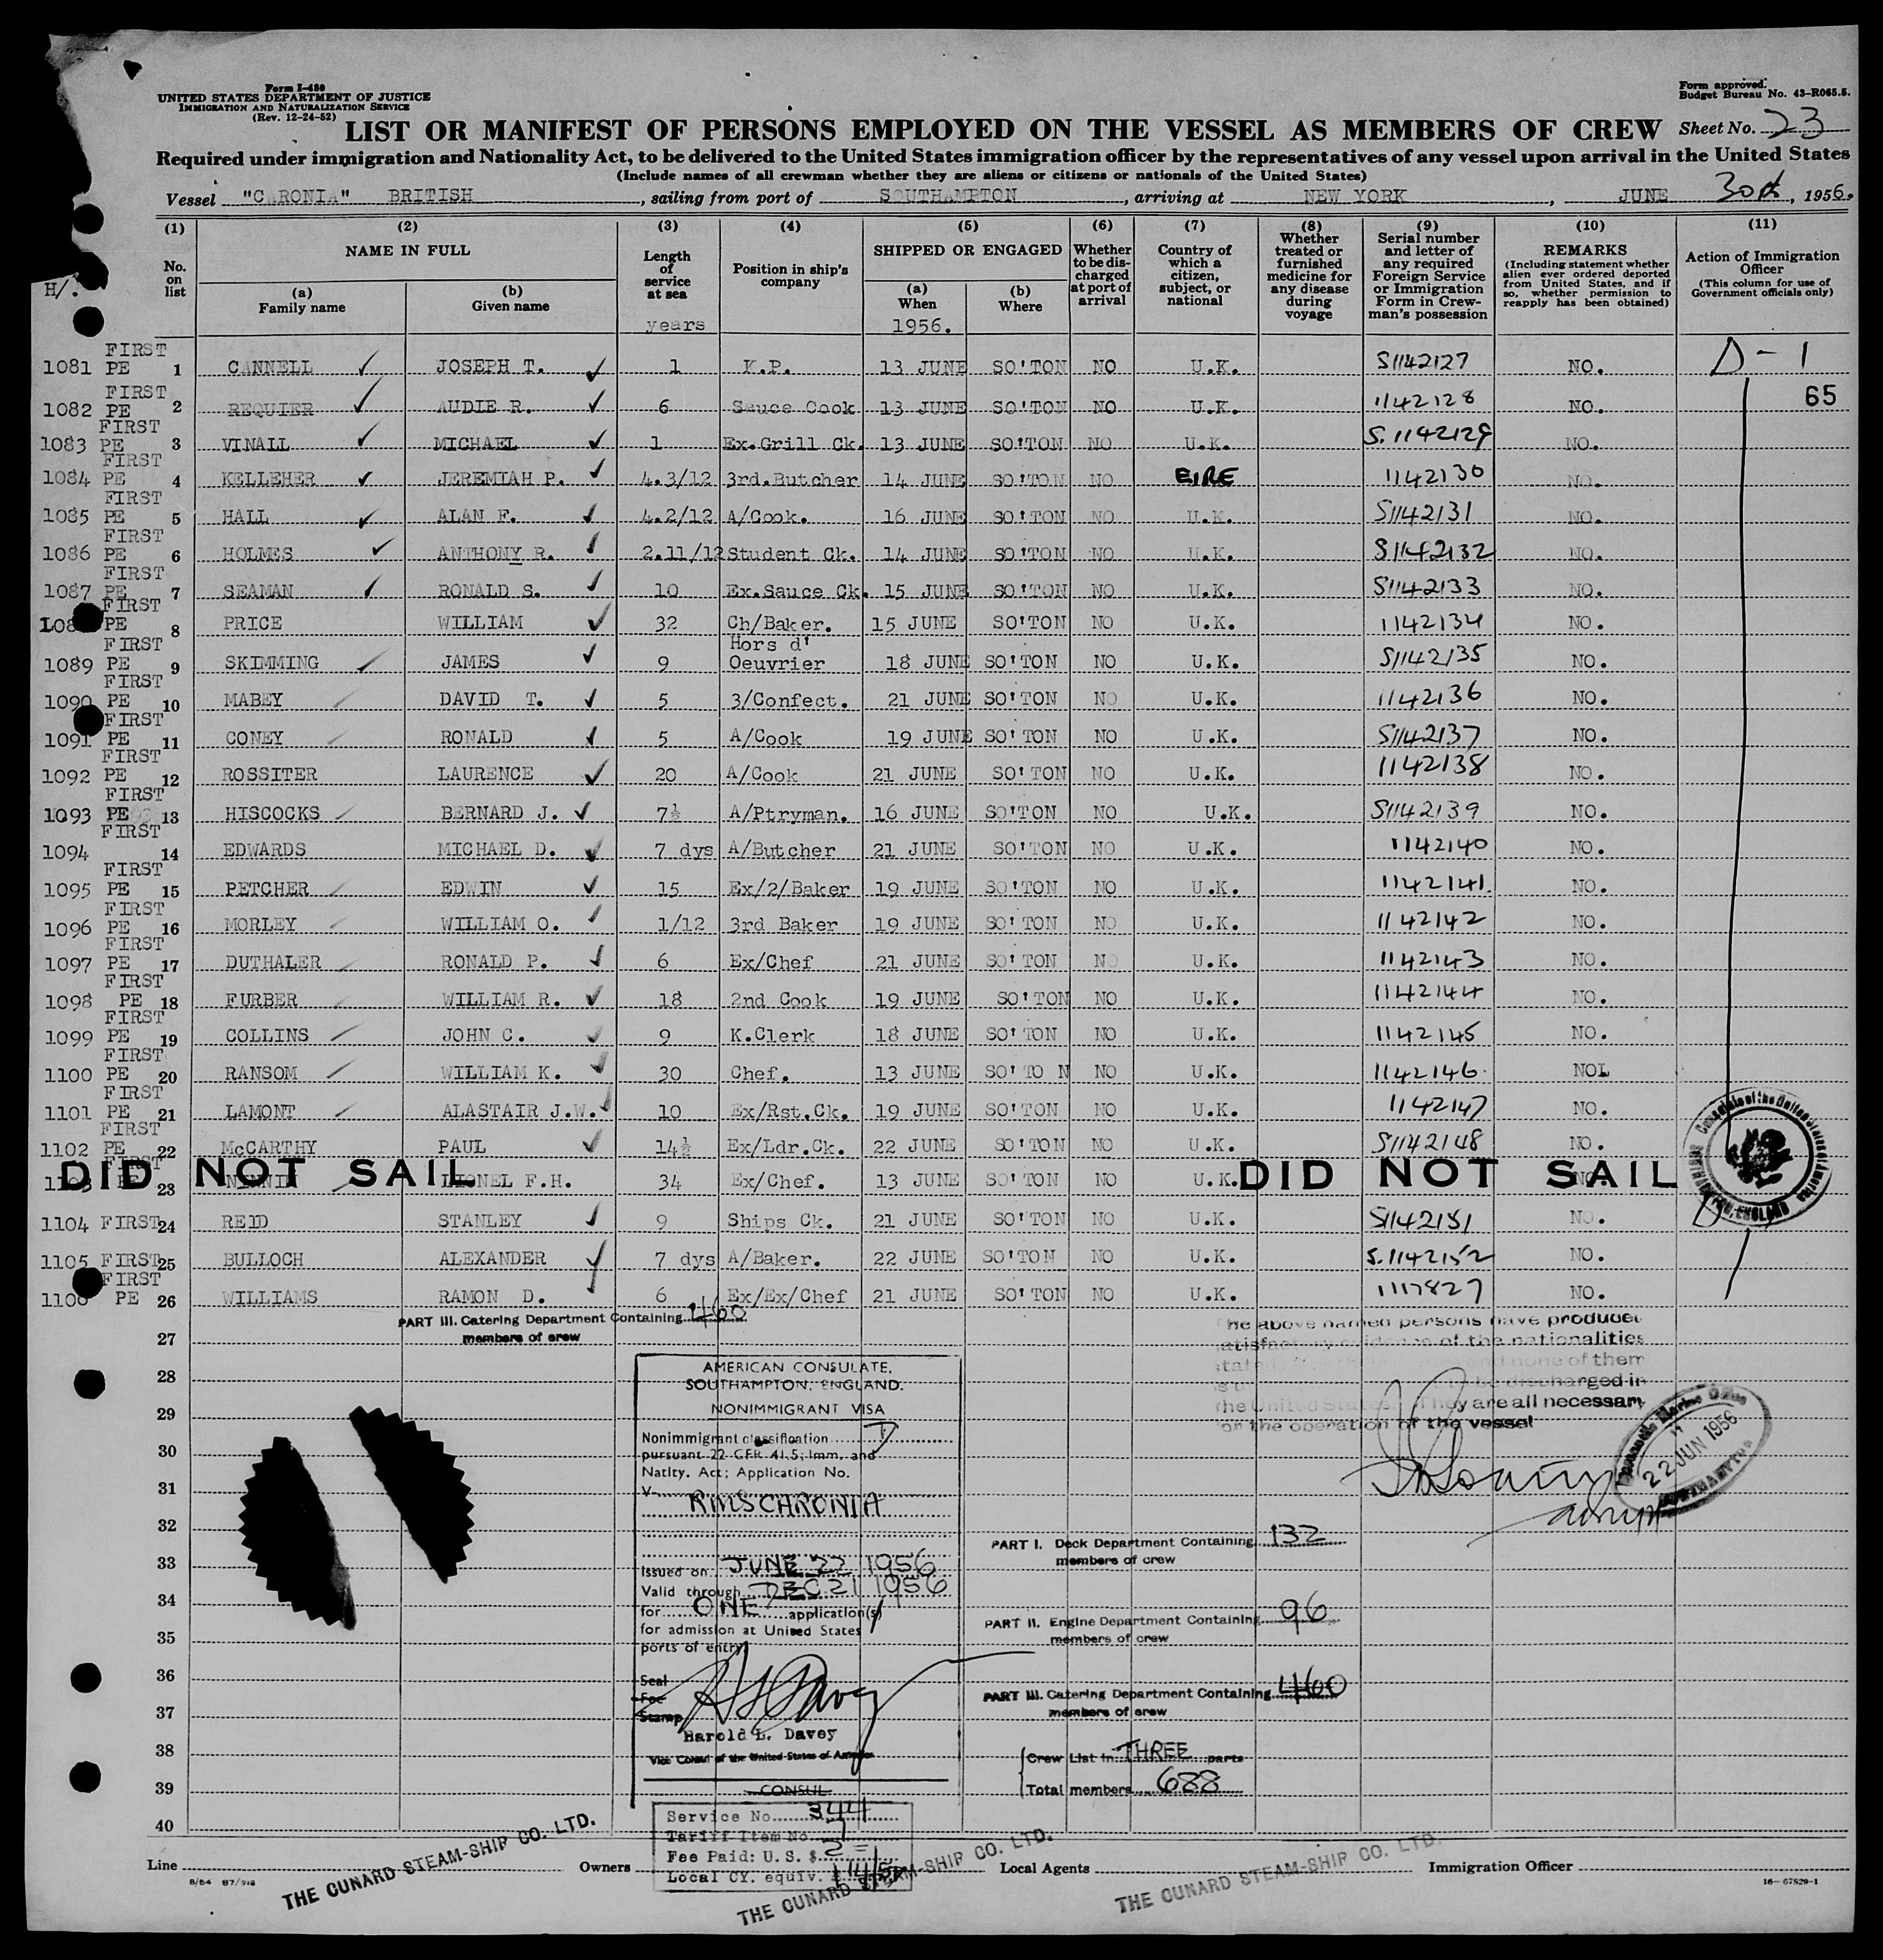 Form I-480
UNITED STATES DEPARTMENT OF JUSTICE
IMMIGRATION AND NATURALIZATION SERVICE
(Rev. 12-24-52)
Form approved.
Budget Bureau No. 43-R065.5.
LIST OR MANIFEST OF PERSONS EMPLOYED ON THE VESSEL AS MEMBERS OF CREW Sheet No. 23
Required under immigration and Nationality Act, to be delivered to the United States immigration officer by the representatives of any vessel upon arrival in the United States
(Include names of all crewman whether they are aliens or citizens or nationals of the United States)
Vessel "CARONIA" BRITISH, sailing from port of SOUTHAMPTON, arriving at NEW YORK, JUNE 30th, 1956.
(1) (2) (3) (4) (5) (6) (7) (8) (9) (10) (11)
No. on list
NAME IN FULL
(a) Family name
(b) Given name
Length of service at sea
years
Position in ship's company
SHIPPED OR ENGAGED
(a) When
1956.
(b) Where
Whether to be discharged at port of arrival
Country of which a citizen, subject, or national
Whether treated or furnished medicine for any disease during voyage
Serial number and letter of any required Foreign Service or Immigration Form in Crewman's possession
REMARKS
(Including statement whether alien ever ordered deported from United States, and if so, whether permission to reapply has been obtained)
Action of Immigration Officer
(This column for use of Government officials only)
H/.
1081 FIRST PE 1 CANNELL JOSEPH T. 1 K.P. 13 JUNE SO'TON NO U.K. S1142127 NO. D-1
1082 FIRST PE 2 REQUIER AUDIE R. 6 Sauce Cook 13 JUNE SO'TON NO U.K. 1142128 NO. 65
1083 FIRST PE 3 VINALL MICHAEL 1 Ex.Grill Ck. 13 JUNE SO'TON NO U.K. S.1142129 NO.
1084 FIRST PE 4 KELLEHER JEREMIAH P. 4.3/12 3rd.Butcher 14 JUNE SO'TON NO EIRE 1142130 NO.
1085 FIRST PE 5 HALL ALAN F. 4.2/12 A/Cook. 16 JUNE SO'TON NO U.K. S1142131 NO.
1086 FIRST PE 6 HOLMES ANTHONY R. 2.11/12 Student Ck. 14 JUNE SO'TON NO U.K. S1142132 NO.
1087 FIRST PE 7 SEAMAN RONALD S. 10 Ex.Sauce Ck. 15 JUNE SO'TON NO U.K. S1142133 NO.
108 FIRST PE 8 PRICE WILLIAM 32 Ch/Baker. 15 JUNE SO'TON NO U.K. 1142134 NO.
1089 FIRST PE 9 SKIMMING JAMES 9 Hors d' Oeuvrier 18 JUNE SO'TON NO U.K. S1142135 NO.
1090 FIRST PE 10 MABEY DAVID T. 5 3/Confect. 21 JUNE SO'TON NO U.K. 1142136 NO.
1091 FIRST PE 11 CONEY RONALD 5 A/Cook 19 JUNE SO'TON NO U.K. S1142137 NO.
1092 FIRST PE 12 ROSSITER LAURENCE 20 A/Cook 21 JUNE SO'TON NO U.K. 1142138 NO.
1093 FIRST PE 13 HISCOCKS BERNARD J. 7½ A/Ptryman. 16 JUNE SO'TON NO U.K. S1142139 NO.
1094 FIRST 14 EDWARDS MICHAEL D. 7 dys A/Butcher 21 JUNE SO'TON NO U.K. 1142140 NO.
1095 FIRST PE 15 PETCHER EDWIN 15 Ex/2/Baker 19 JUNE SO'TON NO U.K. 1142141. NO.
1096 FIRST PE 16 MORLEY WILLIAM O. 1/12 3rd Baker 19 JUNE SO'TON NO U.K. 1142142 NO.
1097 FIRST PE 17 DUTHALER RONALD P. 6 Ex/Chef 21 JUNE SO'TON NO U.K. 1142143 NO.
1098 FIRST PE 18 FURBER WILLIAM R. 18 2nd Cook 19 JUNE SO'TON NO U.K. 1142144 NO.
1099 FIRST PE 19 COLLINS JOHN C. 9 K.Clerk 18 JUNE SO'TON NO U.K. 1142145 NO.
1100 FIRST PE 20 RANSOM WILLIAM K. 30 Chef. 13 JUNE SO'TO N NO U.K. 1142146 NOL
1101 FIRST PE 21 LAMONT ALASTAIR J.W. 10 Ex/Rst.Ck. 19 JUNE SO'TON NO U.K. 1142147 NO.
1102 FIRST PE 22 McCARTHY PAUL 14½ Ex/Ldr.Ck. 22 JUNE SO'TON NO U.K. S1142148 NO.
DID NOT SAIL 23 LIONEL F.H. 34 Ex/Chef. 13 JUNE SO'TON NO U.K. DID NOT SAIL
1104 FIRST 24 REID STANLEY 9 Ships Ck. 21 JUNE SO'TON NO U.K. S1142151 NO.
1105 FIRST 25 BULLOCH ALEXANDER 7 dys A/Baker. 22 JUNE SO'TON NO U.K. S.1142152 NO.
1106 FIRST PE 26 WILLIAMS RAMON D. 6 Ex/Ex/Chef 21 JUNE SO'TON NO U.K. 1117827 NO.
Consulate of the United States of America
SOUTHAMPTON, ENGLAND
PART III. Catering Department Containing 460
members of crew
27
28
29
30
31
32
33
34
35
36
37
38
39
40
AMERICAN CONSULATE,
SOUTHAMPTON, ENGLAND.
NONIMMIGRANT VISA
Nonimmigrant classification D
pursuant 22 CFR 41.5; Imm. and
Natlty. Act; Application No.
V-
RMS CARONIA
Issued on JUNE 22 1956
Valid through DEC 21 1956
for ONE application(s)
for admission at United States
ports of entry
Seal
Fee
Stamp
Harold L. Davey
Vice Consul of the United States of America
CONSUL
Service No. 344
Tariff Item No. 7
Fee Paid: U.S. $ 2=
Local CY. equiv.
he above named persons have produced
atisfactory evidence of the nationalities
and none of them
be discharged in
the United States. They are all necessary
for the operation of the vessel
Mercantile Marine Office
22 JUN 1956
SOUTHAMPTON
PART I. Deck Department Containing 132
members of crew
PART II. Engine Department Containing 96
members of crew
PART III. Catering Department Containing 460
members of crew
Crew List in THREE parts
Total members 688
Line THE CUNARD STEAM-SHIP CO. LTD.
Owners THE CUNARD STEAM-SHIP CO. LTD.
Local Agents THE CUNARD STEAM-SHIP CO. LTD.
Immigration Officer
16-67529-1